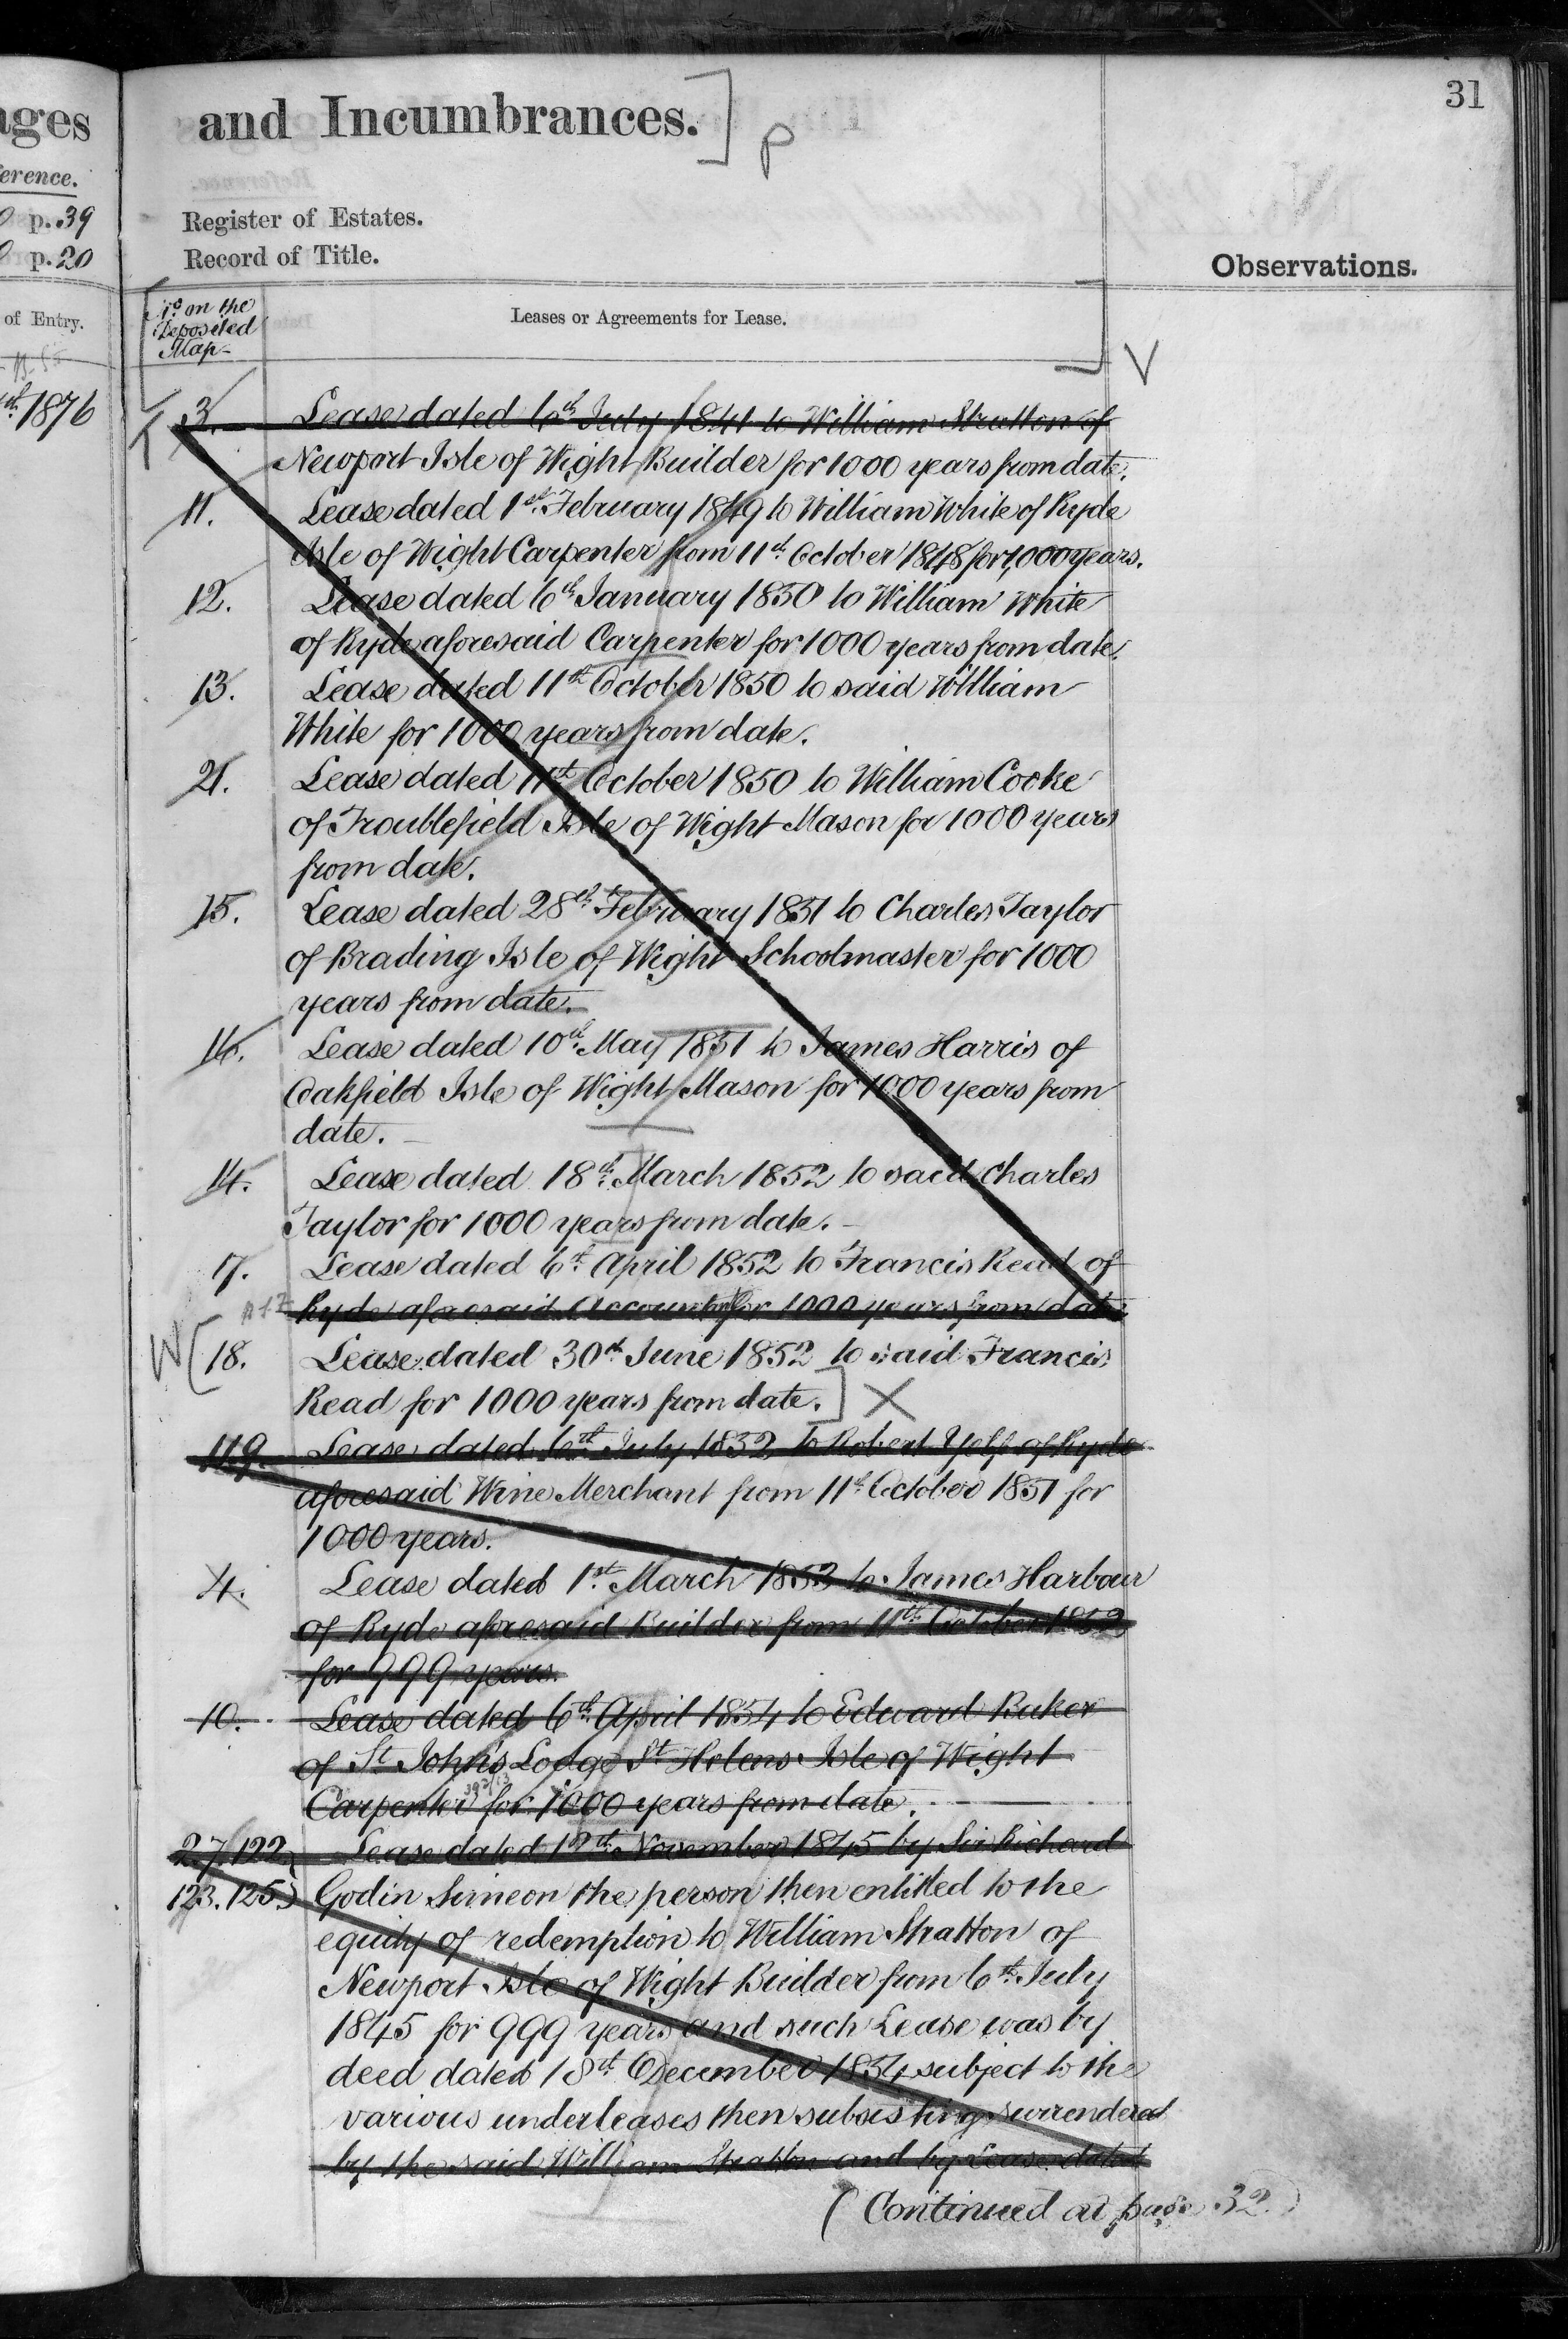 ages
erence.
p. 39
p. 20
of Entry.
1876
31
and Incumbrances.] p
Register of Estates.
Record of Title.
Observations.
No on the
Deposited
Map
Leases or Agreements for Lease.
V
3. Lease dated 6th July 1841 to William Stratton of
Newport Isle of Wight Builder for 1000 years from date.
11. Lease dated 1st February 1849 to William White of Ryde
Isle of Wight Carpenter from 11th October 1848 for 1,000 years.
12. Lease dated 6th January 1850 to William White
of Ryde aforesaid Carpenter for 1000 years from date.
13. Lease dated 11th October 1850 to said William
White for 1000 years from date.
21. Lease dated 11th October 1850 to William Cooke
of Troublefield Isle of Wight Mason for 1000 years
from date.
15. Lease dated 28th February 1851 to Charles Taylor
of Brading Isle of Wight Schoolmaster for 1000
years from date.
16. Lease dated 10th May 1851 to James Harris of
Oakfield Isle of Wight Mason for 1000 years from
date.
14. Lease dated 18th March 1852 to said Charles
Taylor for 1000 years from date.
17. Lease dated 6th April 1852 to Francis Read of
Ryde aforesaid for 1000 years from date.
W [18. Lease dated 30th June 1852 to said Francis
Read for 1000 years from date.] X
119. Lease dated 6th July 1852 to Robert Yelf of Ryde
aforesaid Wine Merchant from 11th October 1851 for
1000 years.
4. Lease dated 1st March 1853 to James Harbour
of Ryde aforesaid Builder from 11th October 1852
for 999 years.
10. Lease dated 6th April 1854 to Edward Baker
of St John's Lodge St Helens Isle of Wight
Carpenter for 1000 years from date.
27. 122. Lease dated November 1845 by Sir Richard
123. 125.) Godin Simeon the person then entitled to the
equity of redemption to William Stratton of
Newport Isle of Wight Builder from 6th July
1845 for 999 years and such Lease was by
deed dated 18th December 1854 subject to the
various underleases then subsisting surrendered
by the said William Stratton and by Lease dated
(Continued at page 32.)